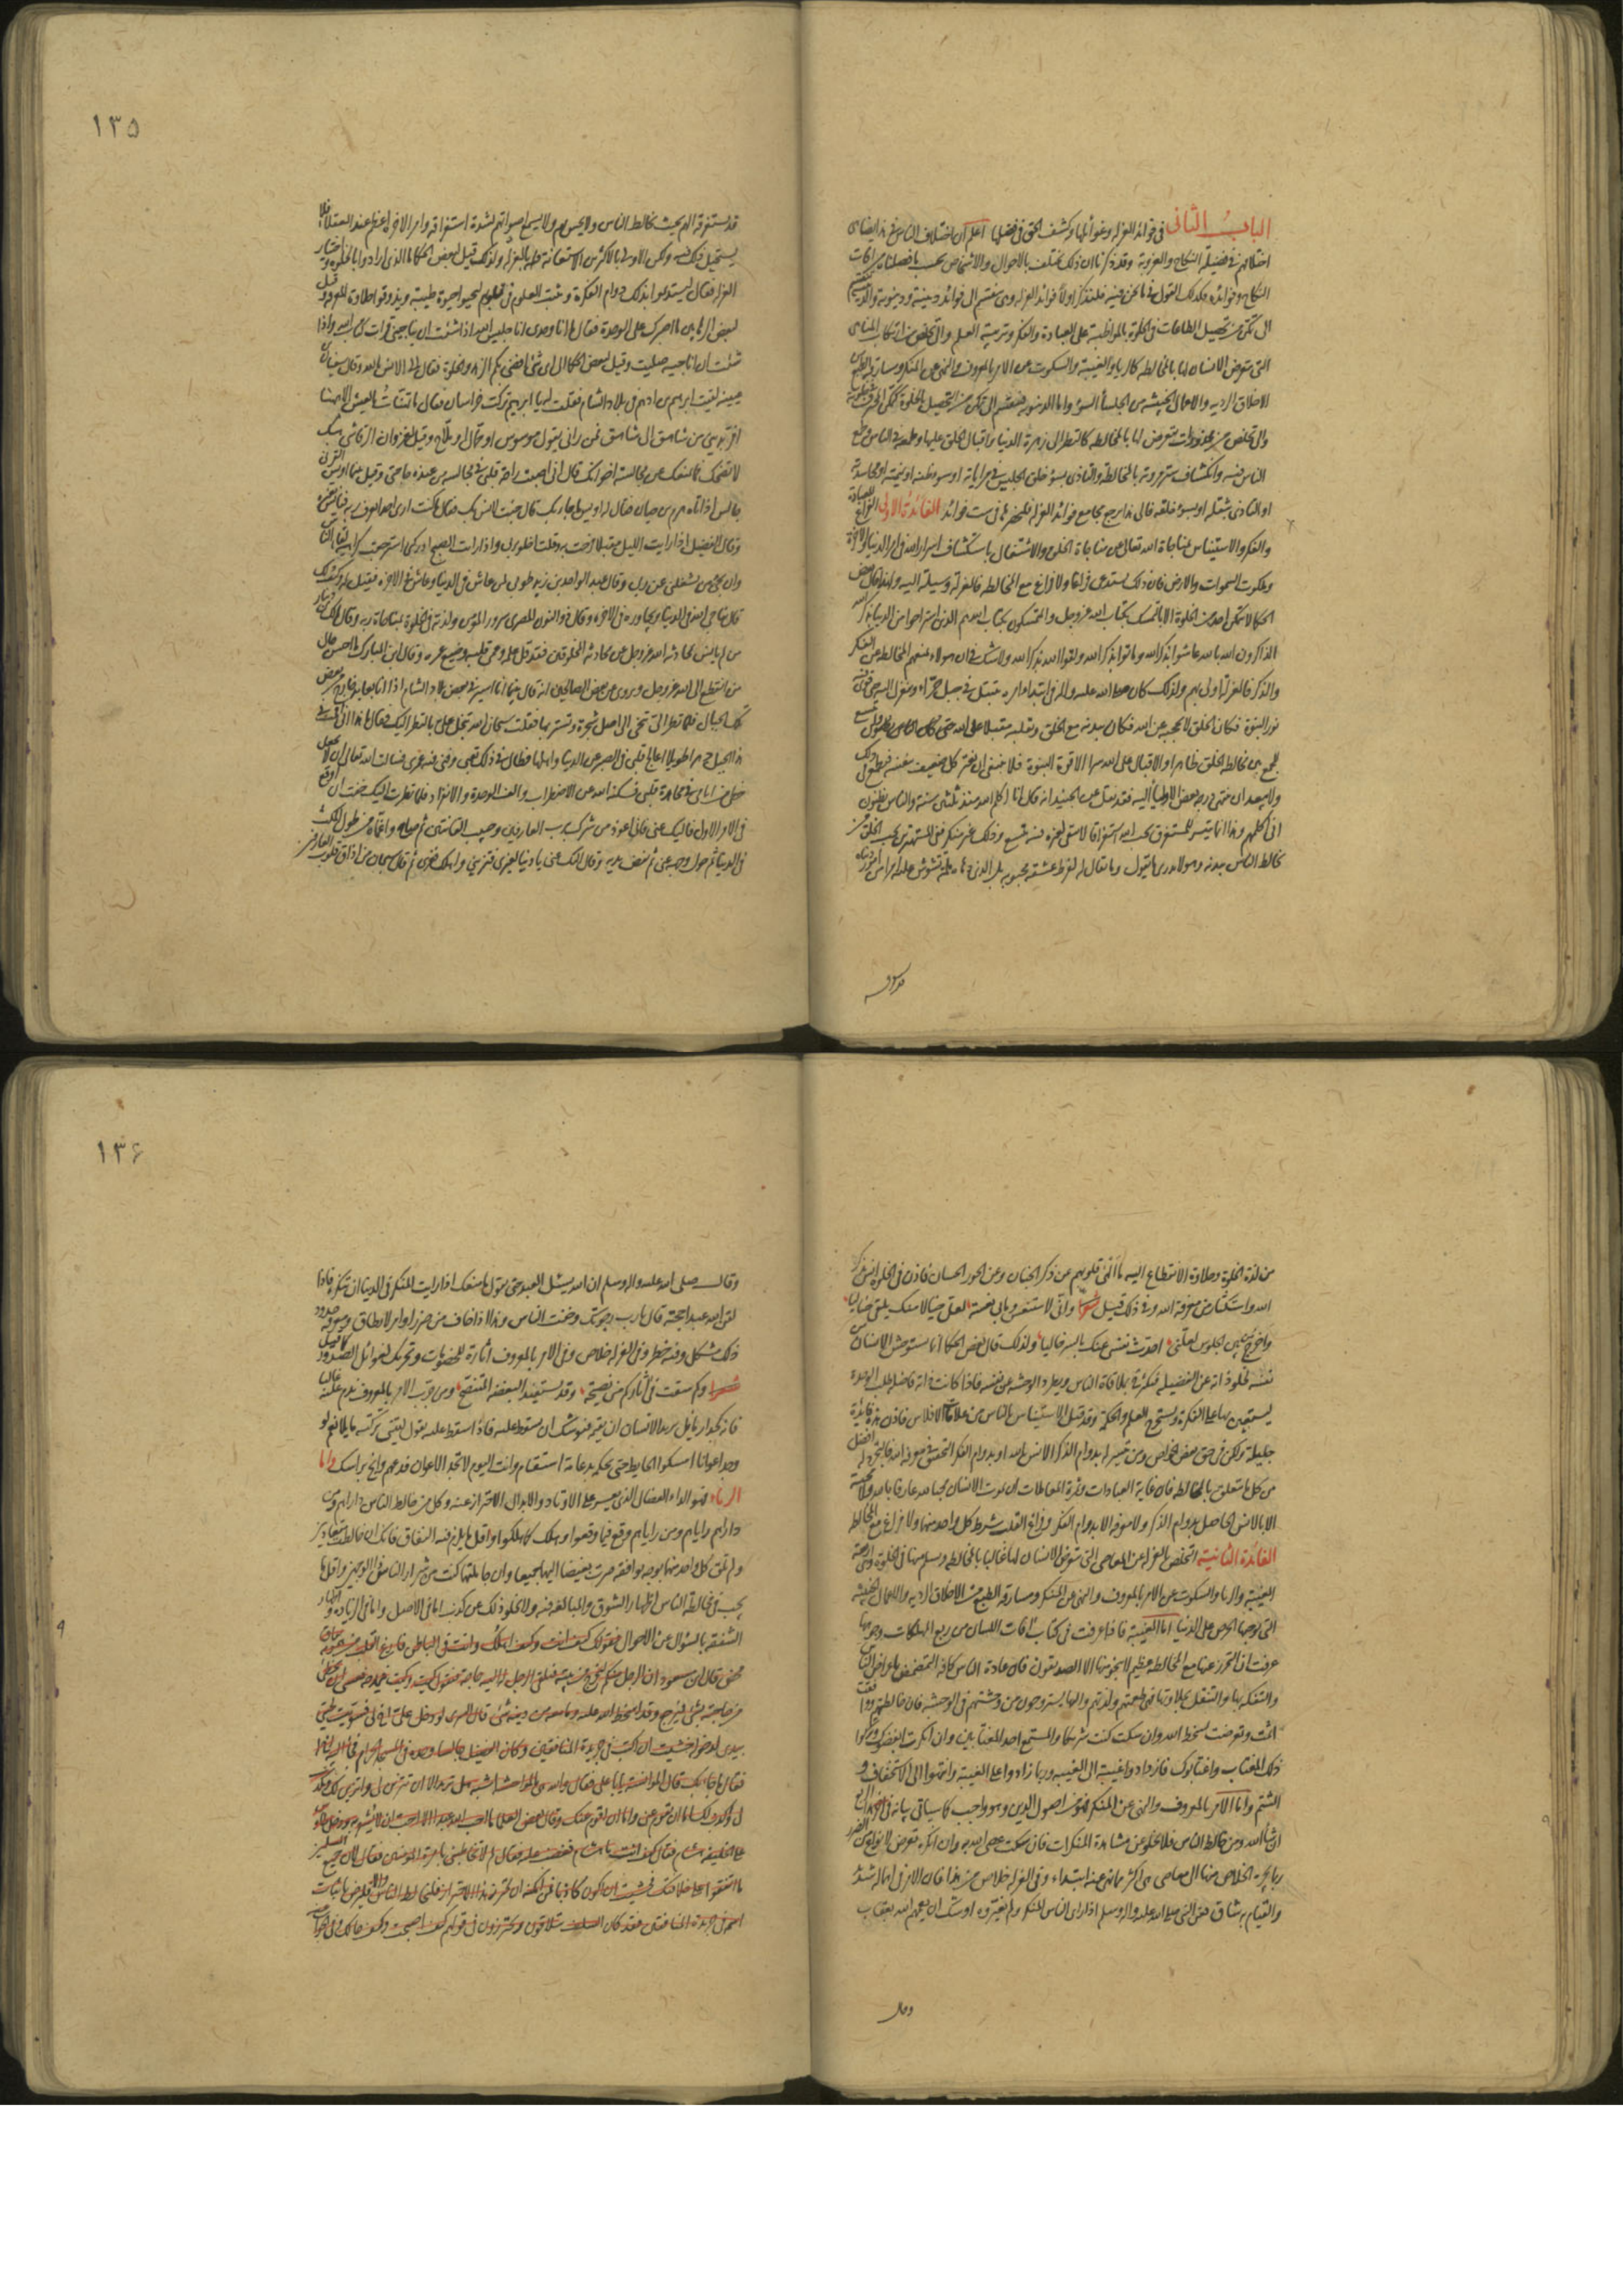 الباب الثانی فی فوائد العزله وغوائلها وکشف الحق فی فضلها اعلم ان اختلاف الناس فی هذا یضاهی
اختلافهم فی فضیلة النکاح والعزوبة وقد ذکرنا ان ذلک یختلف بالاحوال والاشخاص بحسب ما فصلناه من افات
النکاح وفوائده فکذلک القول فیما نحن فیه فلنذکر اولا فوائد العزله وهی تنقسم الی فوائد دینیة ودنیویة والدینیة تنقسم
الی تمکن من تحصیل الطاعات فی الخلوة بالمواظبة علی العبادة والفکر وتربیة العلم والی تخلص من ارتکاب المناهی
التی یتعرض الانسان لها بالمخالطه کالریا والغیبة والسکوت عن الامر بالمعروف والنهی عن المنکر ومسارقة الطبع
الاخلاق الردیه والاعمال الخبیثه من الجلسآ السوء واما الدنیویه فتنقسم الی تمکن من التحصیل بالخلوة کتمکن المحترف فی خلوته
والی تخلص من محذورات یتعرض لها بالمخالطه کالنظر الی زهرة الدنیا واقبال الخلق علیها وطمعه فی الناس وطمع
الناس فیه وانکشاف ستر مروته بالمخالطة والتاذی بسوء خلق الجلیس فی مرایاته او سوء ظنه او نمیمته او محاسدته
او التاذی بثقله او سوء خلقته فالی هذا یرجع مجامع فوائد العزله فلنحصرها فی ست فوائد الفائدة الاولی الفراغ للعبادة
والفکر والاستیناس بمناجاة الله تعالی عن مناجاة الخلق والاشتغال باستکشاف اسرار الله فی امر الدنیا والاخرة
وملکوت السموات والارض فان ذلک یستدعی فراغا ولا فراغ مع المخالطه فالعزلة وسیلة الیه ولهذا قال بعض
الحکما لا یتمکن احد من الخلوة الا بالتمسک بکتاب الله عز وجل والمتمسکون بکتاب الله هم الذین استراحوا من الدنیا بذکر الله
الذاکرون الله بالله عاشوا بذکر الله وماتوا بذکر الله ولقوا الله بذکر الله ولا شک فی ان هولاء یمنعهم المخالطه عن الفکر
والذکر فالعزلة اولی بهم ولذلک کان صلی الله علیه واله فی ابتداء امره یتبتل فی جبل حراء وینعزل الیه حتی قوی فیه
نور النبوة فکان الخلق لا یحجبه عن الله فکان ببدنه مع الخلق وبقلبه مقبلا علی الله
الجمع بین مخالطة الخلق ظاهرا والاقبال علی الله سرا الا قوة النبوة فلا ینبغی ان یغتر کل ضعیف بنفسه فیطمع فی ذلک
ولا یبعد ان ینتهی درجه بعض الاولیآ الیه فقد نقل عن الجنید انه قال انا اکلم الله منذ ثلثین سنة والناس یظنون
انی اکلمهم وهذا انما یتیسر للمستغرق بحب الله استغراقا لا یبقی لغیره فیه متسع وذلک غیر منکر ففی المشتهرین بحب الخلق من
یخالط الناس ببدنه وهو لا یدری ما یقول وما یقال له لفرط عشقه لمحبوبه بل الذی دهاه ملمة تشوش علیه امرا من امور دنیاه
۱۳۵
قد یستغرقه الهم بحیث یخالط الناس ولا یحس بهم ولا یسمع اصواتهم لشدة استغراقه وامر الاخرة اعظم عند العقلاء فلا
یستحیل ذلک فیه ولکن الاولی بالاکثرین الاستعانة علیه بالعزله ولذلک قیل لبعض الحکما ما الذی ارادوا بالخلوة واختیار
العزلة فقال یستدعوا بذلک دوام الفکرة وتثبت العلوم فی قلوبهم لیحیوا حیوة طیبة ویذوقوا حلاوة المعرفة وقیل
لبعض الرهابین ما اصبرک علی الوحدة فقال ما انا وحدی انا جلیس الله اذا شئت ان یناجینی قرات کتاب الله واذا
شئت ان اناجیه صلیت وقیل لبعض الحکما الی ای شئ افضی بکم الزهد والخلوة فقال الی الانس بالله وقال سفیان بن
عیینه لقیت ابرهیم بن ادهم فی بلاد الشام فقلت له یا ابرهیم ترکت خراسان فقال ما تهنات بالعیش الا ههنا
افر بدینی من شاهق الی شاهق فمن رانی یقول موسوس او حمال او ملاح وقیل لغزوان الرقاشی هبک
لا تضحک فما یمنعک من مجالسة اخوانک قال انی اصبت راحة قلبی فی مجالسة من عنده حاجتی وقیل بینما اویس القرنی
جالس اذ اتاه هرم بن حیان فقال له اویس ما جاء بک قال جئت لانس بک فقال ما کنت اری احدا یعرف ربه فیانس بغیره
وقال الفضیل اذا رایت اللیل مقبلا فرحت به وقلت اخلو بربی واذا رایت الصبح ادرکنی استرجعت کراهیة لقاء الناس
وان یجیئنی من یشغلنی عن ربی وقال عبد الواحد بن زید طوبی لمن عاش فی الدنیا وعاش فی الاخرة فقیل له وکیف ذلک
قال یناجی الله فی الدنیا ویجاوره فی الاخرة وقال ذو النون المصری سرور المؤمن ولذته فی الخلوة بمناجاة ربه وقال مالک بن دینار
من لم یانس بمحادثه الله عز وجل عن محادثة المخلوقین فقد قل علمه وعمی قلبه وضیع عمره وقال ابن المبارک ما احسن حال
من انقطع الی الله عز وجل ویروی عن بعض الصالحین انه قال بینما انا اسیر فی بعض بلاد الشام اذا انا بعابد خارج من بعض
تلک الجبال فلما نظر الی تنحی الی اصل شجرة وتستر بها فقلت سبحان الله تبخل علی بالنظر الیک فقال یا هذا انی اقمت فی
هذا الجبل دهرا طویلا اعالج قلبی فی الصبر عن الدنیا واهلها فطال فی ذلک تعبی وفنی فیه عمری فسالت الله تعالی ان لا یجعل
حظی من ایامی فی مجاهدة قلبی فسکنه الله عن الاضطراب والفه الوحدة والانفراد فلما نظرت الیک خفت ان اوقع
فی الامر الاول فالیک عنی فانی اعوذ من شرک برب العارفین وحبیب القانتین ثم صاح واغماه من طول المکث
فی الدنیا ثم حول وجهه عنی ثم نفض یدیه وقال الیک عنی یا دنیا لغیری فتزینی واهلک فغری ثم قال سبحان من اذاق قلوب العارفین
من لذة الخلوة وحلاوة الانقطاع الیه ما الهی قلوبهم عن ذکر الجنان وعن الحور الحسان فاذن فی الخلوة انس بذکر
الله واستکثار من معرفة الله وفی ذلک قیل شعرا وانی لاستغشی وما بی نعسة لعل خیالا منک یلقی خیالیا
واخرج من بین الجلوس لعلنی احدث نفسی عنک بالسر خالیا ولذلک قال بعض الحکما انما یستوحش الانسان من
نفسه لخلو ذاته عن الفضیلة فیکثر ملاقاة الناس ویطرد الوحشة عن نفسه فاذا کانت ذاته فاضله طلب الوحدة
لیستعین بها علی الفکرة ویستخرج العلم والحکمة وقد قیل الاستیناس بالناس من علامات الافلاس فاذن هذه فائدة
جلیلة ولکن فی حق بعض الخواص ومن تیسر له بدوام الذکر الانس بالله او بدوام الفکر التحقق فی معرفة الله فالتجرد له افضل
من کل ما یتعلق بالمخالطه فان غایة العبادات وثمرة المعاملات ان یموت الانسان محبا لله عارفا بالله ولا محبة
الا بالانس الحاصل بدوام الذکر ولا معرفه الا بدوام الفکر وفراغ القلب شرط کل واحد منهما ولا فراغ مع المخالطه
الفائدة الثانیة التخلص بالعزله عن المعاصی التی یتعرض الانسان لها غالبا بالمخالطه ویسلم منها فی الخلوة وهی اربعة
الغیبة والریا والسکوت عن الامر بالمعروف والنهی عن المنکر ومسارقة الطبع من الاخلاق الردیه والاعمال الخبیثه
التی یوجبها الحرص علی الدنیا اما الغیبة فاذا عرفت فی کتاب افات اللسان من ربع المهلکات وجوهها
عرفت ان التحرز عنها مع المخالطة عظیم لا ینجو منها الا الصدیقون فان عادة الناس کافه التمضمض باعراض الناس
والتفکه بها والتنقل بحلاوتها فهی طعمتهم ولذتهم والیها یستروحون من وحشتهم فی الوحشه فان خالطتهم ووافقت
اثمت وتعرضت لسخط الله وان سکت کنت شریکا والمستمع احد المغتابین وان انکرت ابغضوک وترکوا
ذلک المغتاب واغتابوک فازدادوا غیبة الی الغیبه وربما زادوا علی الغیبة وانتهوا الی الاستخفاف و
الشتم واما الامر بالمعروف والنهی عن المنکر فهو من اصول الدین وهو واجب کما سیاتی بیانه فی هذا الربع
ان شا الله ومن خالط الناس فلا یخلو عن مشاهدة المنکرات فان سکت عصی الله به وان انکر تعرض لانواع من الضرر
ربما یجره الخلاص منها الی معاصی هی اکثر مما نهی عنه ابتداء وفی العزله خلاص من هذا فان الامر فی اهماله شدید
والقیام به شاق فعن النبی صلی الله علیه واله وسلم اذا رای الناس المنکر ولم یغیروه اوشک ان یعمهم الله بعقاب
وقال
۱۳۶
وقال صلی الله علیه واله وسلم ان الله یسئل العبد حتی یقول ما منعک اذا رایت المنکر فی الدنیا ان تنکره فاذا
لقن الله عبدا حجته قال یا رب رجوتک وخفت الناس وهذا اذا خاف من ضرر او امر لا یطاق ومعرفة حدود
ذلک مشکل وفیه خطر وفی العزله خلاص وفی الامر بالمعروف اثارة للخصومات وتحریک لغوائل الصدور کما قیل
شعرا وکم سقت فی آثارکم من نصیحة وقد یستفید البغضة المتنصح ومن جرب الامر بالمعروف ندم علیه غالبا
فانه کجدار مایل یرید الانسان ان یقیمه فیوشک ان یسقط علیه فاذا سقط علیه یقول لیتنی ترکته مایلا نعم لو
وجد اعوانا امسکوا الحایط حتی یحکمه بدعامة استقام وانت الیوم لا تجد الاعوان فدعهم وانج براسک واما
الریاء فهو الداء العضال الذی یعسر علی الاوتاد والابدال الاحتراز عنه وکل من خالط الناس داراهم ومن
داراهم رایاهم ومن رایاهم وقع فیما وقعوا وهلک کما هلکوا واقل ما یلزم فیه النفاق فانک ان خالطت متعادیین
ولم تلق کل واحد منهما بوجه یوافقه صرت بغیضا الیهما جمیعا وان جاملتهما کنت من شرار الناس ذا الوجهین واقل ما
یجب فی مخالطة الناس اظهار الشوق والمبالغه فیه ولا یخلو ذلک عن کذب اما فی الاصل واما فی الزیادة واظهار
الشفقه بالسؤال عن الاحوال فقولک کیف انت وکیف اهلک وانت فی الباطن فارغ القلب من همومه نفاق
محض قال ابن مسعود ان الرجل منکم لیخرج من بیته فیلقی الرجل له الیه حاجة فیقول کیت وکیت
من حاجته بشئ فیرجع وقد اسخط الله علیه وما معه من دینه شئ قال السری لو دخل علی اخ لی فسویت لحیتی
بیدی لدخوله خشیت ان اکتب فی جریدة المنافقین وکان الفضیل جالسا وحده فی المسجد الحرام فجاء الیه اخ له
فقال ما جاء بک قال الموانسة یا ابا علی فقال هی والله بالمواحشة اشبه هل ترید الا ان تتزین لی واتزین لک وتکذب
لی واکذب لک اما ان تقوم عنی واما ان اقوم عنک وقال بعض العلما ما احب الله عبدا الا احب ان لا یشعر به ودخل طاوس
علی الخلیفه هشام فقال کیف انت یا هشام فغضب علیه فقال لم لا تخاطبنی بامرة المومنین فقال لان جمیع المسلمین
ما اتفقوا علی خلافتک فخشیت ان اکون کاذبا فمن امکنه ان یحترز هذا الاحتراز فلیخالط الناس والا فلیرض باثبات
اسمه فی جریدة المنافقین فقد کان السلف یتلاقون ویحترزون فی قولهم کیف اصبحت وکیف حالک وفی الجواب عنه